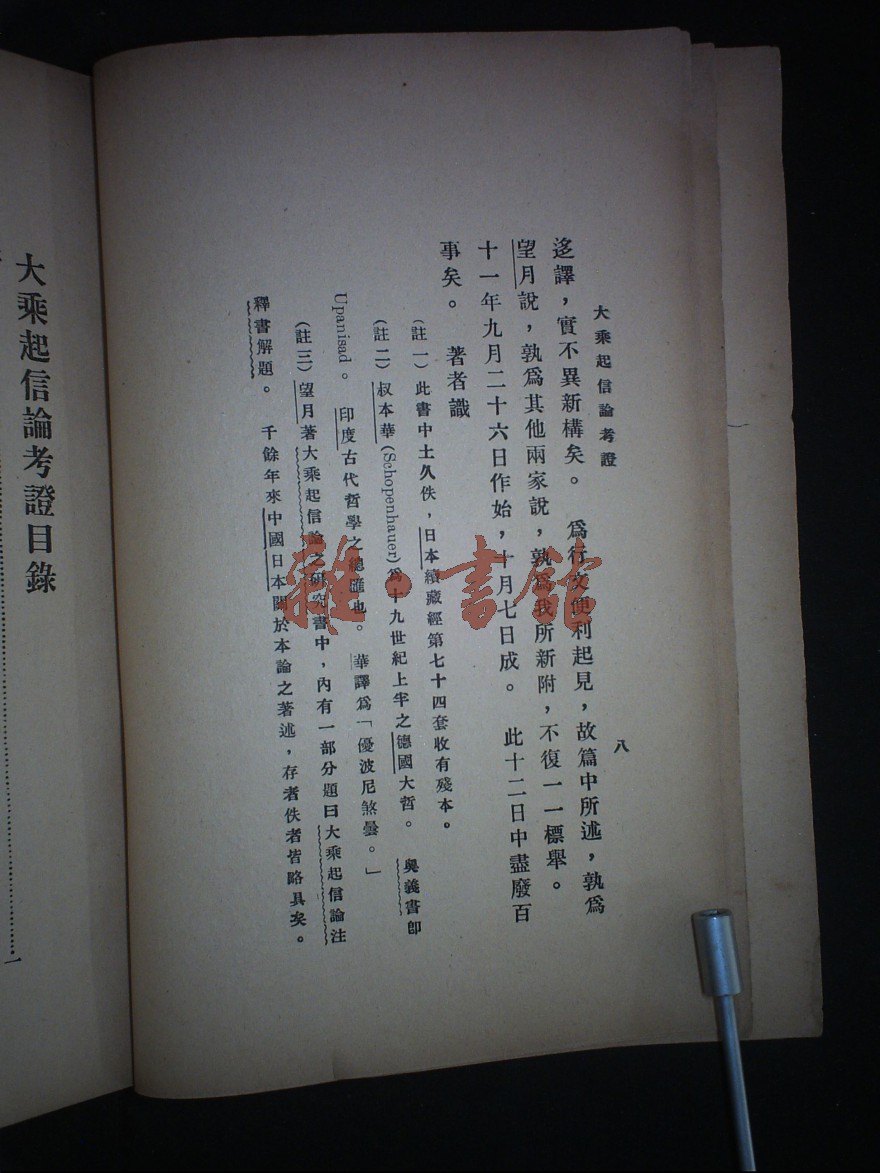 大乘起信論考證
八
迻譯，實不異新構矣。　爲行文便利起見，故篇中所述，孰爲
望月說，孰爲其他兩家說，孰爲我所新附，不復一一標舉。
十一年九月二十六日作始，十月七日成。　此十二日中盡廢百
事矣。　著者識
（註一）此書中土久佚，日本續藏經第七十四套收有殘本。
（註二）叔本華(Schopenhauer)爲十九世紀上半之德國大哲。　奧義書卽
Upanisad。　印度古代哲學之總匯也。　華譯爲「優波尼煞曇。」
（註三）望月著大乘起信論之研究書中，內有一部分題曰大乘起信論注
釋書解題。　千餘年來中國日本關於本論之著述，存者佚者皆略具矣。
大乘起信論考證目錄
一
雜·書館